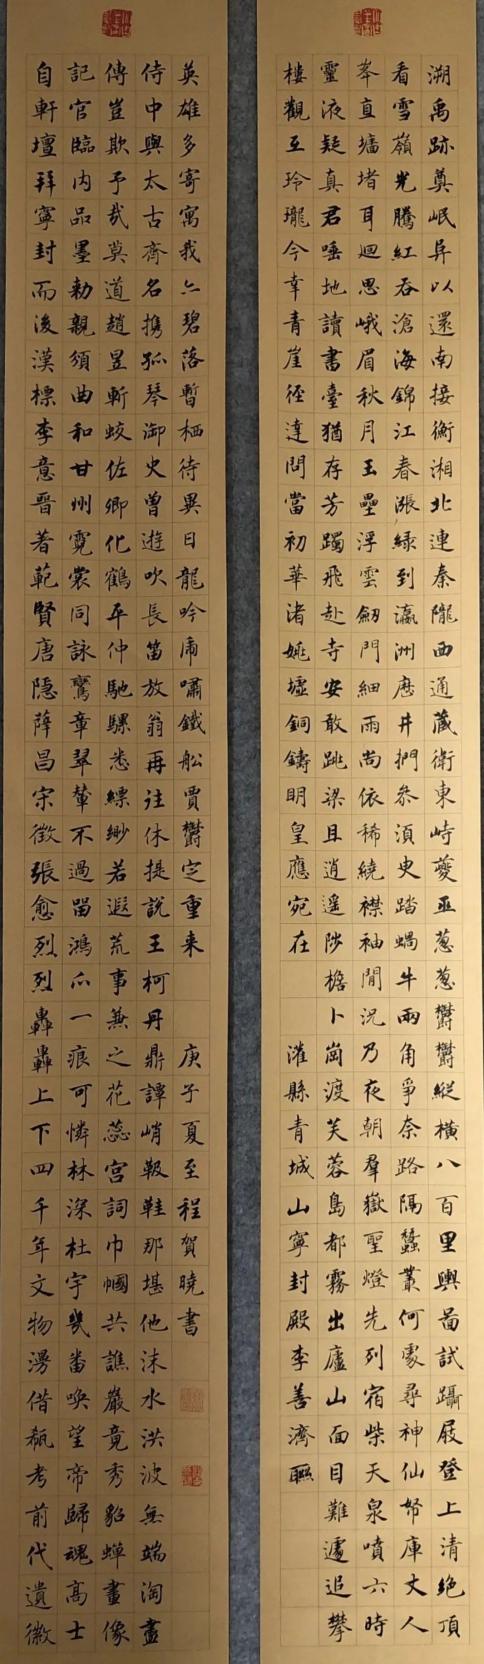 溯禹跡奠岷阜以還南接衡湘北連秦隴西通藏衛東峙夔巫葱葱鬱鬱縱橫八百里輿啚試躡屐登上清絕頂
看雪嶺光騰紅吞滄海錦江春漲緑到瀛洲歷井捫參須臾踏蝸牛兩角爭奈路隔蠶叢何處尋神仙帑庫丈人
峯直墻堵耳迴思峨眉秋月玉壘浮雲劒門細雨尚依稀繞襟袖間況乃夜朝羣嶽聖燈先列宿柴天泉噴六時
靈液疑真君唾地讀書臺猶存芳躅飛赴寺安敢跳梁且逍遥陟檐卜崗渡芙蓉島都霧出廬山面目難遽追攀
樓觀互玲瓏今幸青崖徑達問當初華渚姚墟銅鑄明皇應宛在 灌縣青城山寧封殿李善濟聯
自軒壇拜寧封而後漢標李意晋著範賢唐隱薛昌宋徵張愈烈烈轟轟上下四千年文物漫借瓻考前代遺徽
記官臨内品墨勅親頒曲和甘州霓裳同詠鸞章翠輦不過留鴻爪一痕可憐林深杜宇幾番喚望帝歸魂高士
傳豈欺予哉莫道趙昱斬蛟佐卿化鶴平仲馳騾悉縹緲若遐荒事兼之花蕊宮詞巾幗共譙巖竟秀貂蟬畫像
侍中與太古齊名携孤琴御史曾遊吹長笛放翁再往休提說王柯丹鼎譚峭靸鞋那堪他沫水洪波無端淘盡
英雄多寄寓我亦碧落暫栖待異日龍吟虎嘯鐵船賈鬱定重来 庚子夏至程賀曉書